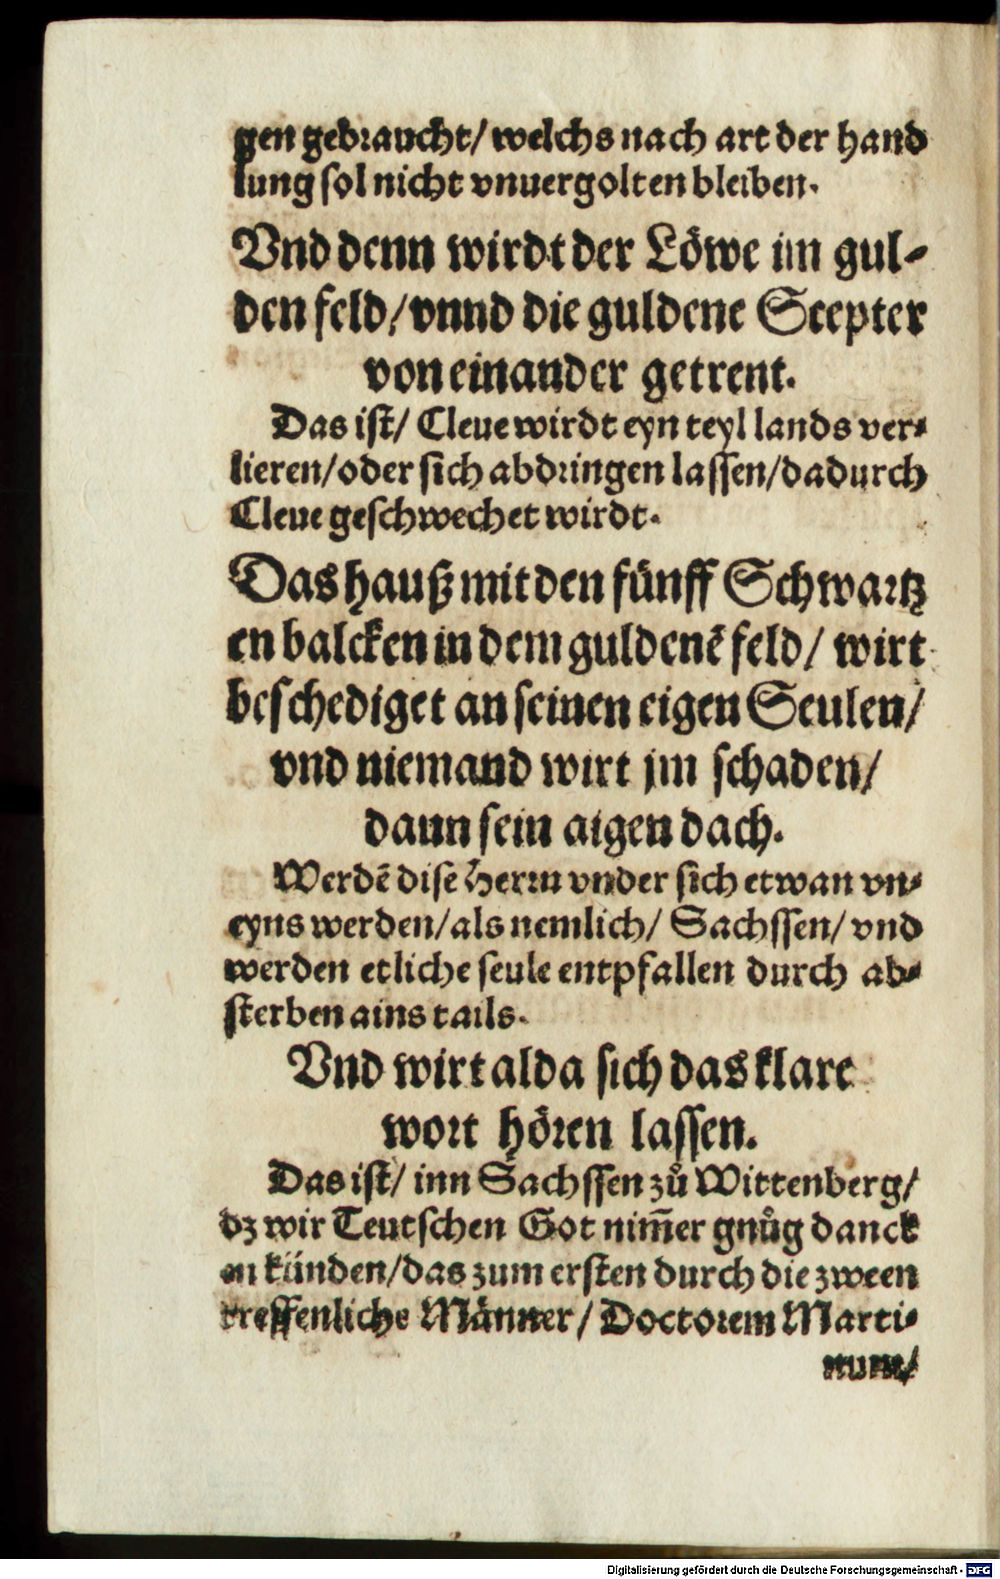 gen gebraucht/ welchs nach art der hand
lung sol nicht vnuergolten bleiben.
Vnd denn wirdt der Löwe im gul-
den feld/ vnnd die guldene Scepter
von einander getrent.
Das ist/ Cleue wirdt eyn teyl lands ver-
lieren/ oder sich abdringen lassen/ dadurch
Cleue geschwechet wirdt.
Das hauß mit den fünff Schwartz
en balcken in dem guldenē feld/ wirt
beschediget an seinen eigen Seulen/
vnd niemand wirt jm schaden/
dann sein aigen dach.
Werdē dise Herrn vnder sich etwan vn-
eyns werden/ als nemlich/ Sachssen/ vnd
werden etliche seule entpfallen durch ab-
sterben ains tails.
Vnd wirt alda sich das klare
wort hören lassen.
Das ist/ inn Sachssen zů Wittenberg/
dz wir Teutschen Got nim̄er gnůg danck
en künden/ das zum ersten durch die zween
treffenliche Männer/ Doctorem Marti-
num/
Digitalisierung gefördert durch die Deutsche Forschungsgemeinschaft - DFG